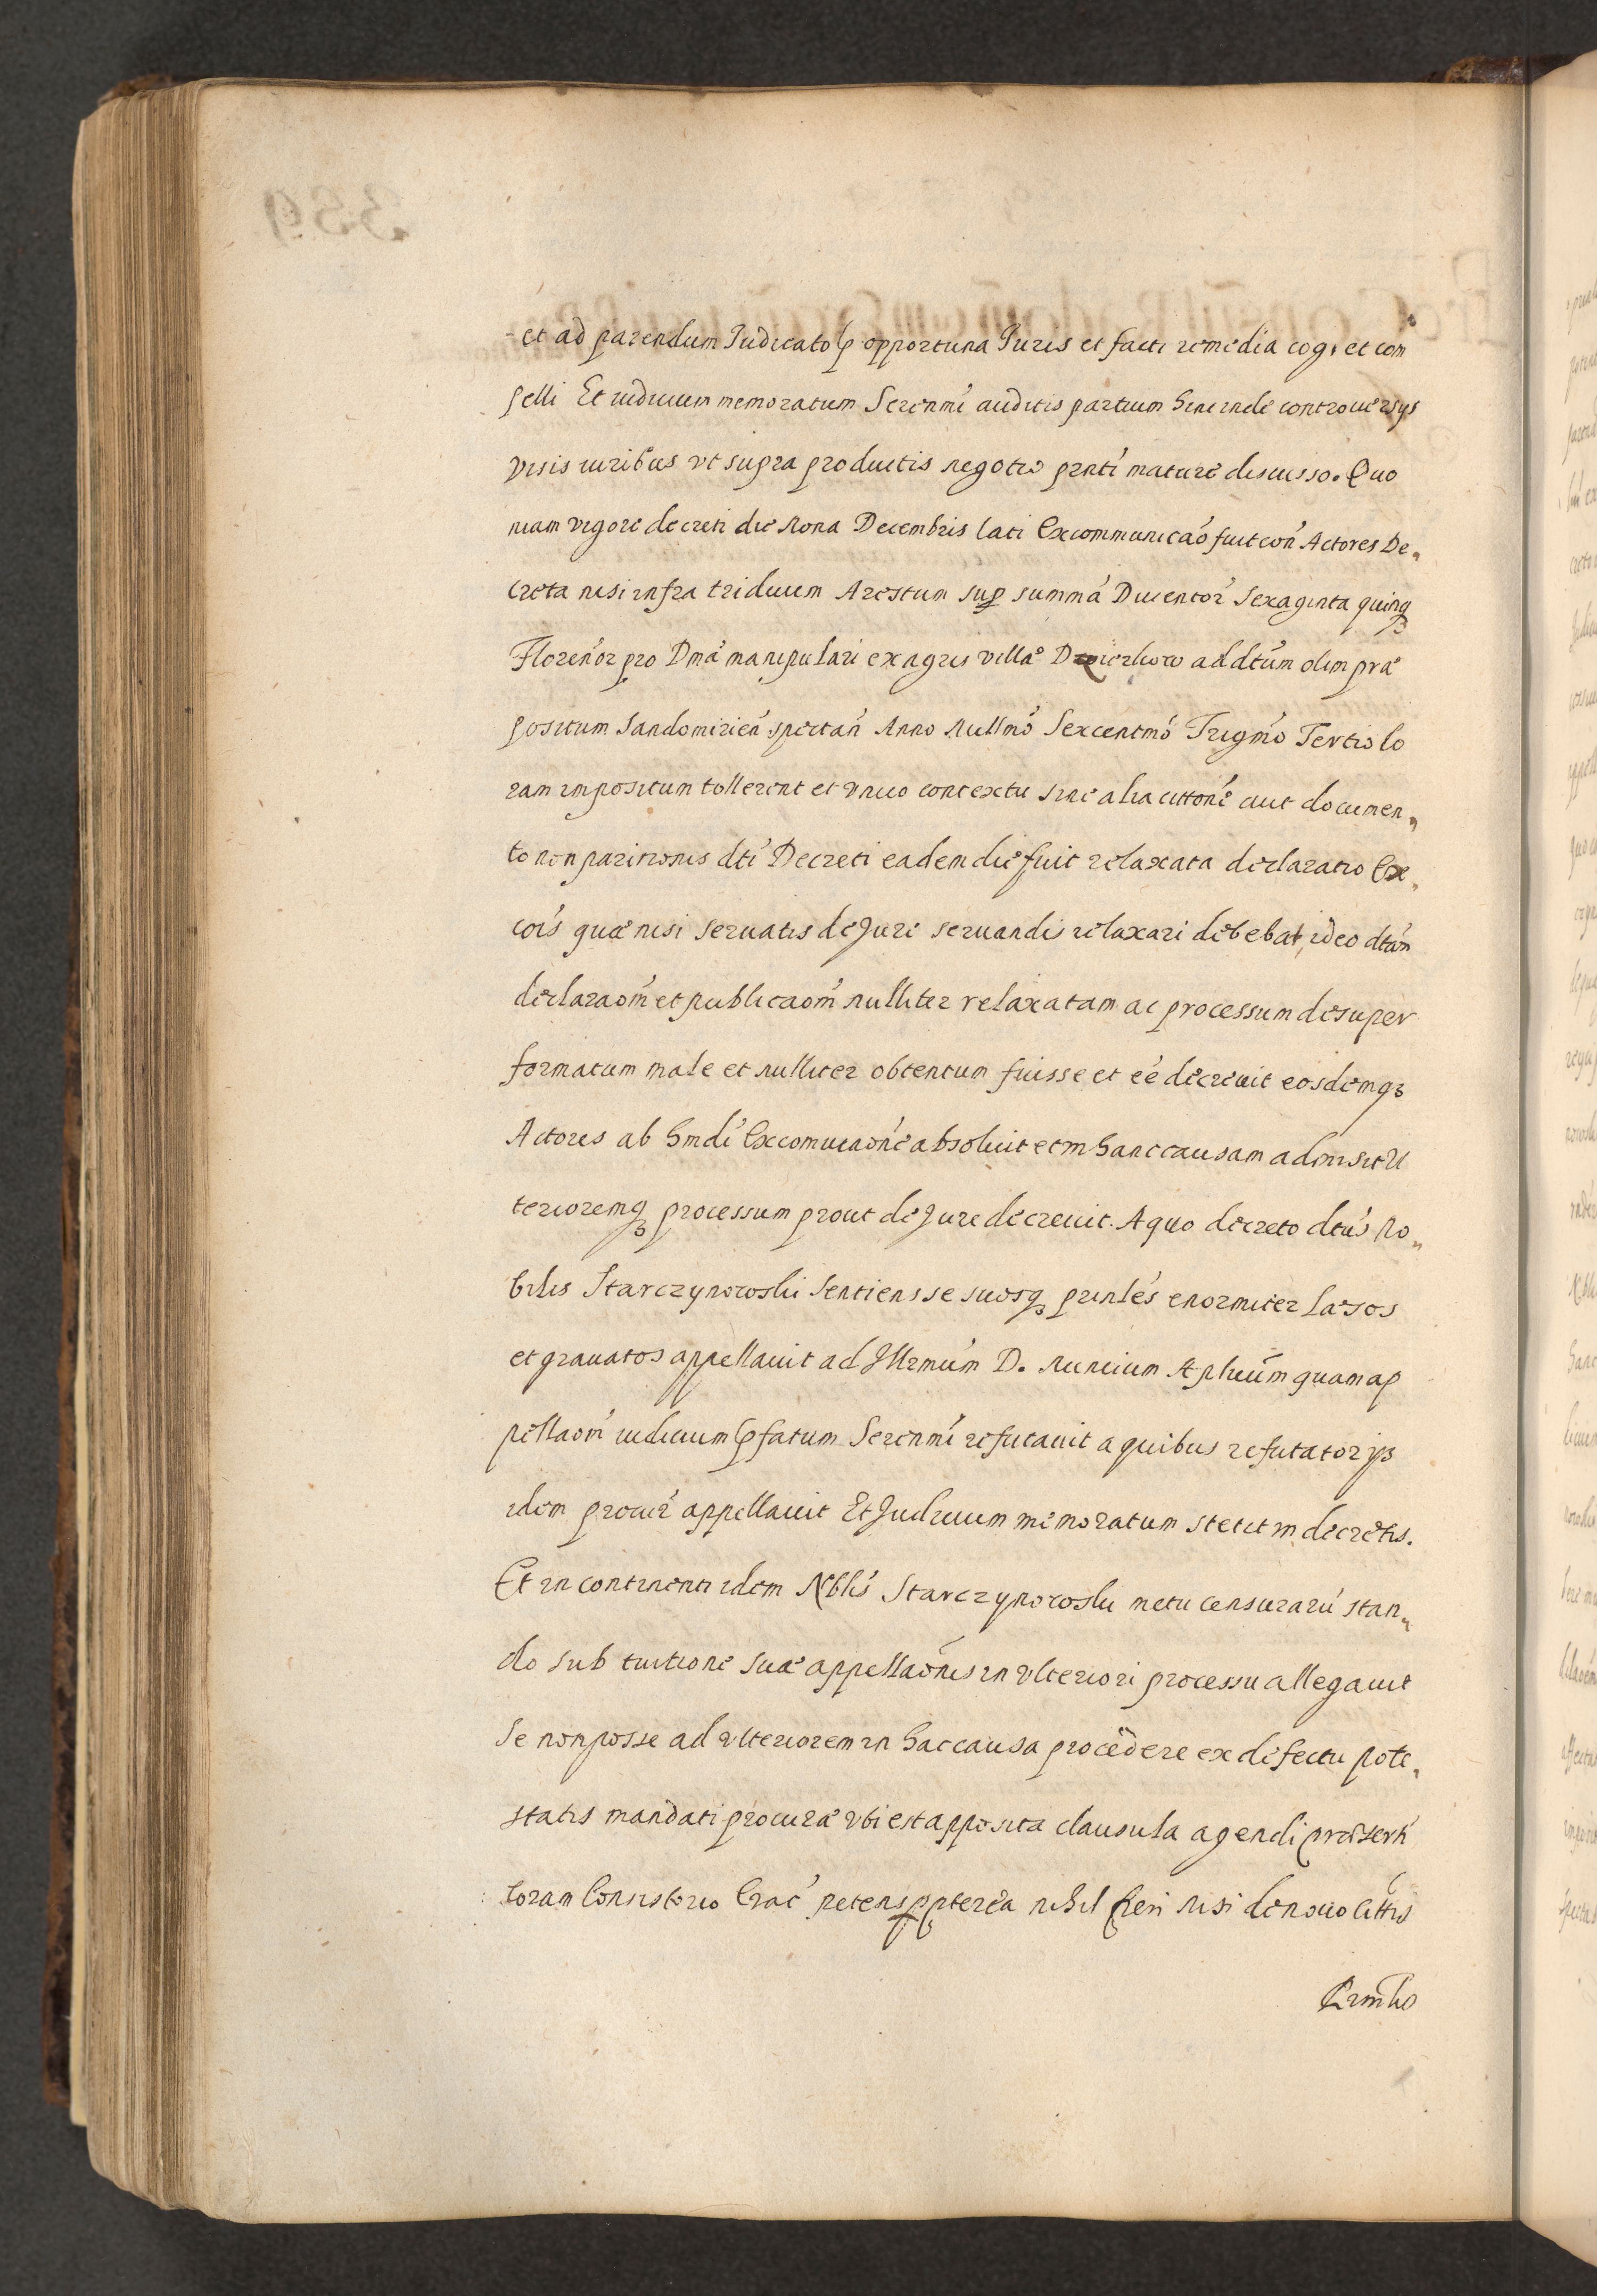 et ad parendum Iudicato p opportuna Iuris et facti remedia cogi et com
pelli Et iudicium memoratum Serenmi auditis partium hincinde controuersys
visis iuribus vt supra productis negotio pnti mature discusso. Quo
niam vigore decreti die Nona Decembris lati Excommunicao fuit con Actores De„
creta nisi infra triduum Arestum sup summa Ducentor Sexaginta quinq
Florenor pro Dma manipulari ex agris villae ad dtum olim prae
positum Sandomirien spectan Anno Millmo Sexcentmo Trigmo Tertio co
ram impositum tollerent et vnico contextu sine alia cittone aut documen„
to non paritionis dti Decreti eadem die fuit relaxata declaratio Ex„
cois quae nisi seruatis de Jure seruandis relaxari debebat, ideo dtam
declaraom et publicaom nulliter relaxatam ac processum desuper
formatum male et nulliter obtentum fuisse et ee decreuit eosdemq3
Actores ab hmdi Excomucaone absoluit et in hanc causam admisit Vl
terioremq3 processum prout de Jure decreuit. A quo decreto dtus No„
bilis Starczynowski sentiens se suosq3 prinles enormiter laesos
et grauatos appellauit ad Illrmum D. Nuncium Aplicum quam ap
pellaom iudicium pfatum Serenmi refutauit a quibus refutatorijs
idem procur appellauit Et Judicium memoratum stetit in decretis.
Et in continenti idem Nblis Starczynowski metu censuraru stan„
do sub tuitione suae appellaonis in vlteriori processu allegauit
Se non posse ad vlteriorem in hac causa procedere ex defectu pote„
statis mandati procurae vbi est apposita clausula agendi praesertī
coram Consistorio Crac petens ppterea nihil fieri nisi de nouo Cittis